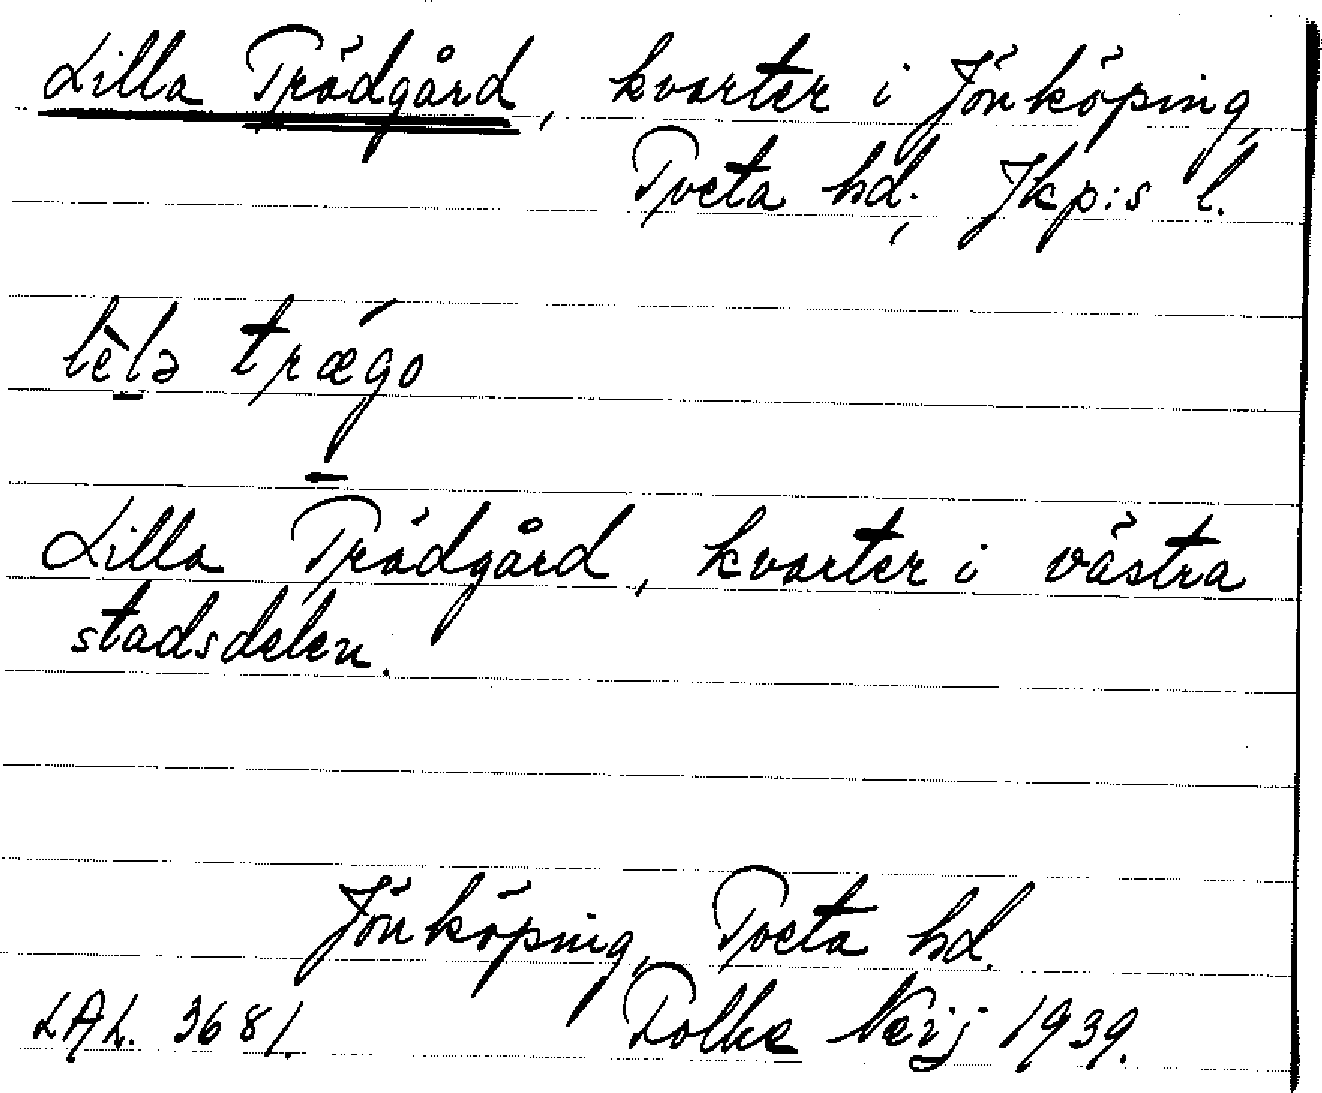 Lilla Trädgård, kvarter i Jönköping,
Tveta hd., Jkp:s l.
lèlə trǽgo
Lilla Trädgård, kvarter i västra
stadsdelen.
Jönköping, Tveta hd.
LAL. 3681. Folke Neij 1939.